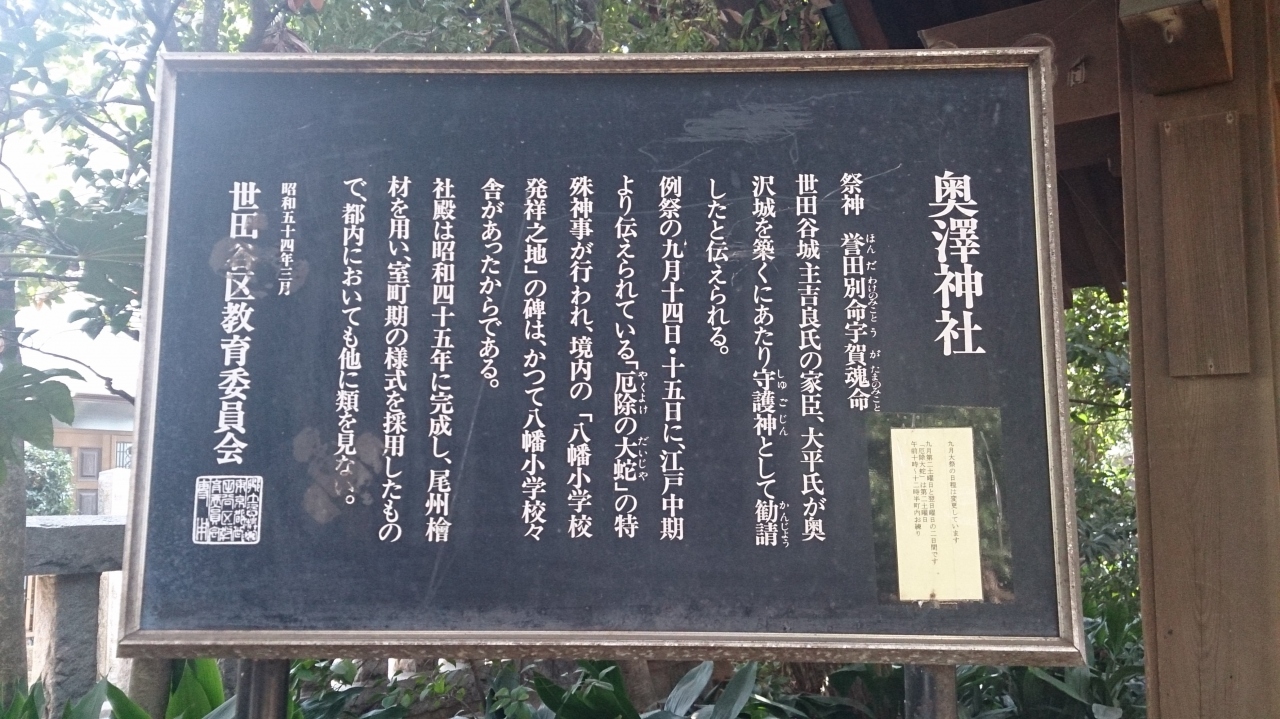 奥澤神社
祭神　誉田別命宇賀魂命
世田谷城主吉良氏の家臣、大平氏が奥
沢城を築くにあたり守護神として勧請
したと伝えられる。
例祭の九月十四日・十五日に、江戸中期
より伝えられている「厄除の大蛇」の特
殊神事が行われ、境内の「八幡小学校
発祥之地」の碑は、かつて八幡小学校々
舎があったからである。
社殿は昭和四十五年に完成し、尾州檜
材を用い、室町期の様式を採用したもの
で、都内においても他に類を見ない。
昭和五十四年三月
世田谷区教育委員会
九月大祭の日程は変更しています
九月第二土曜日と翌日曜日の二日間です
「厄除大蛇」は第二土曜日
午前十時～十二時半町内お練り